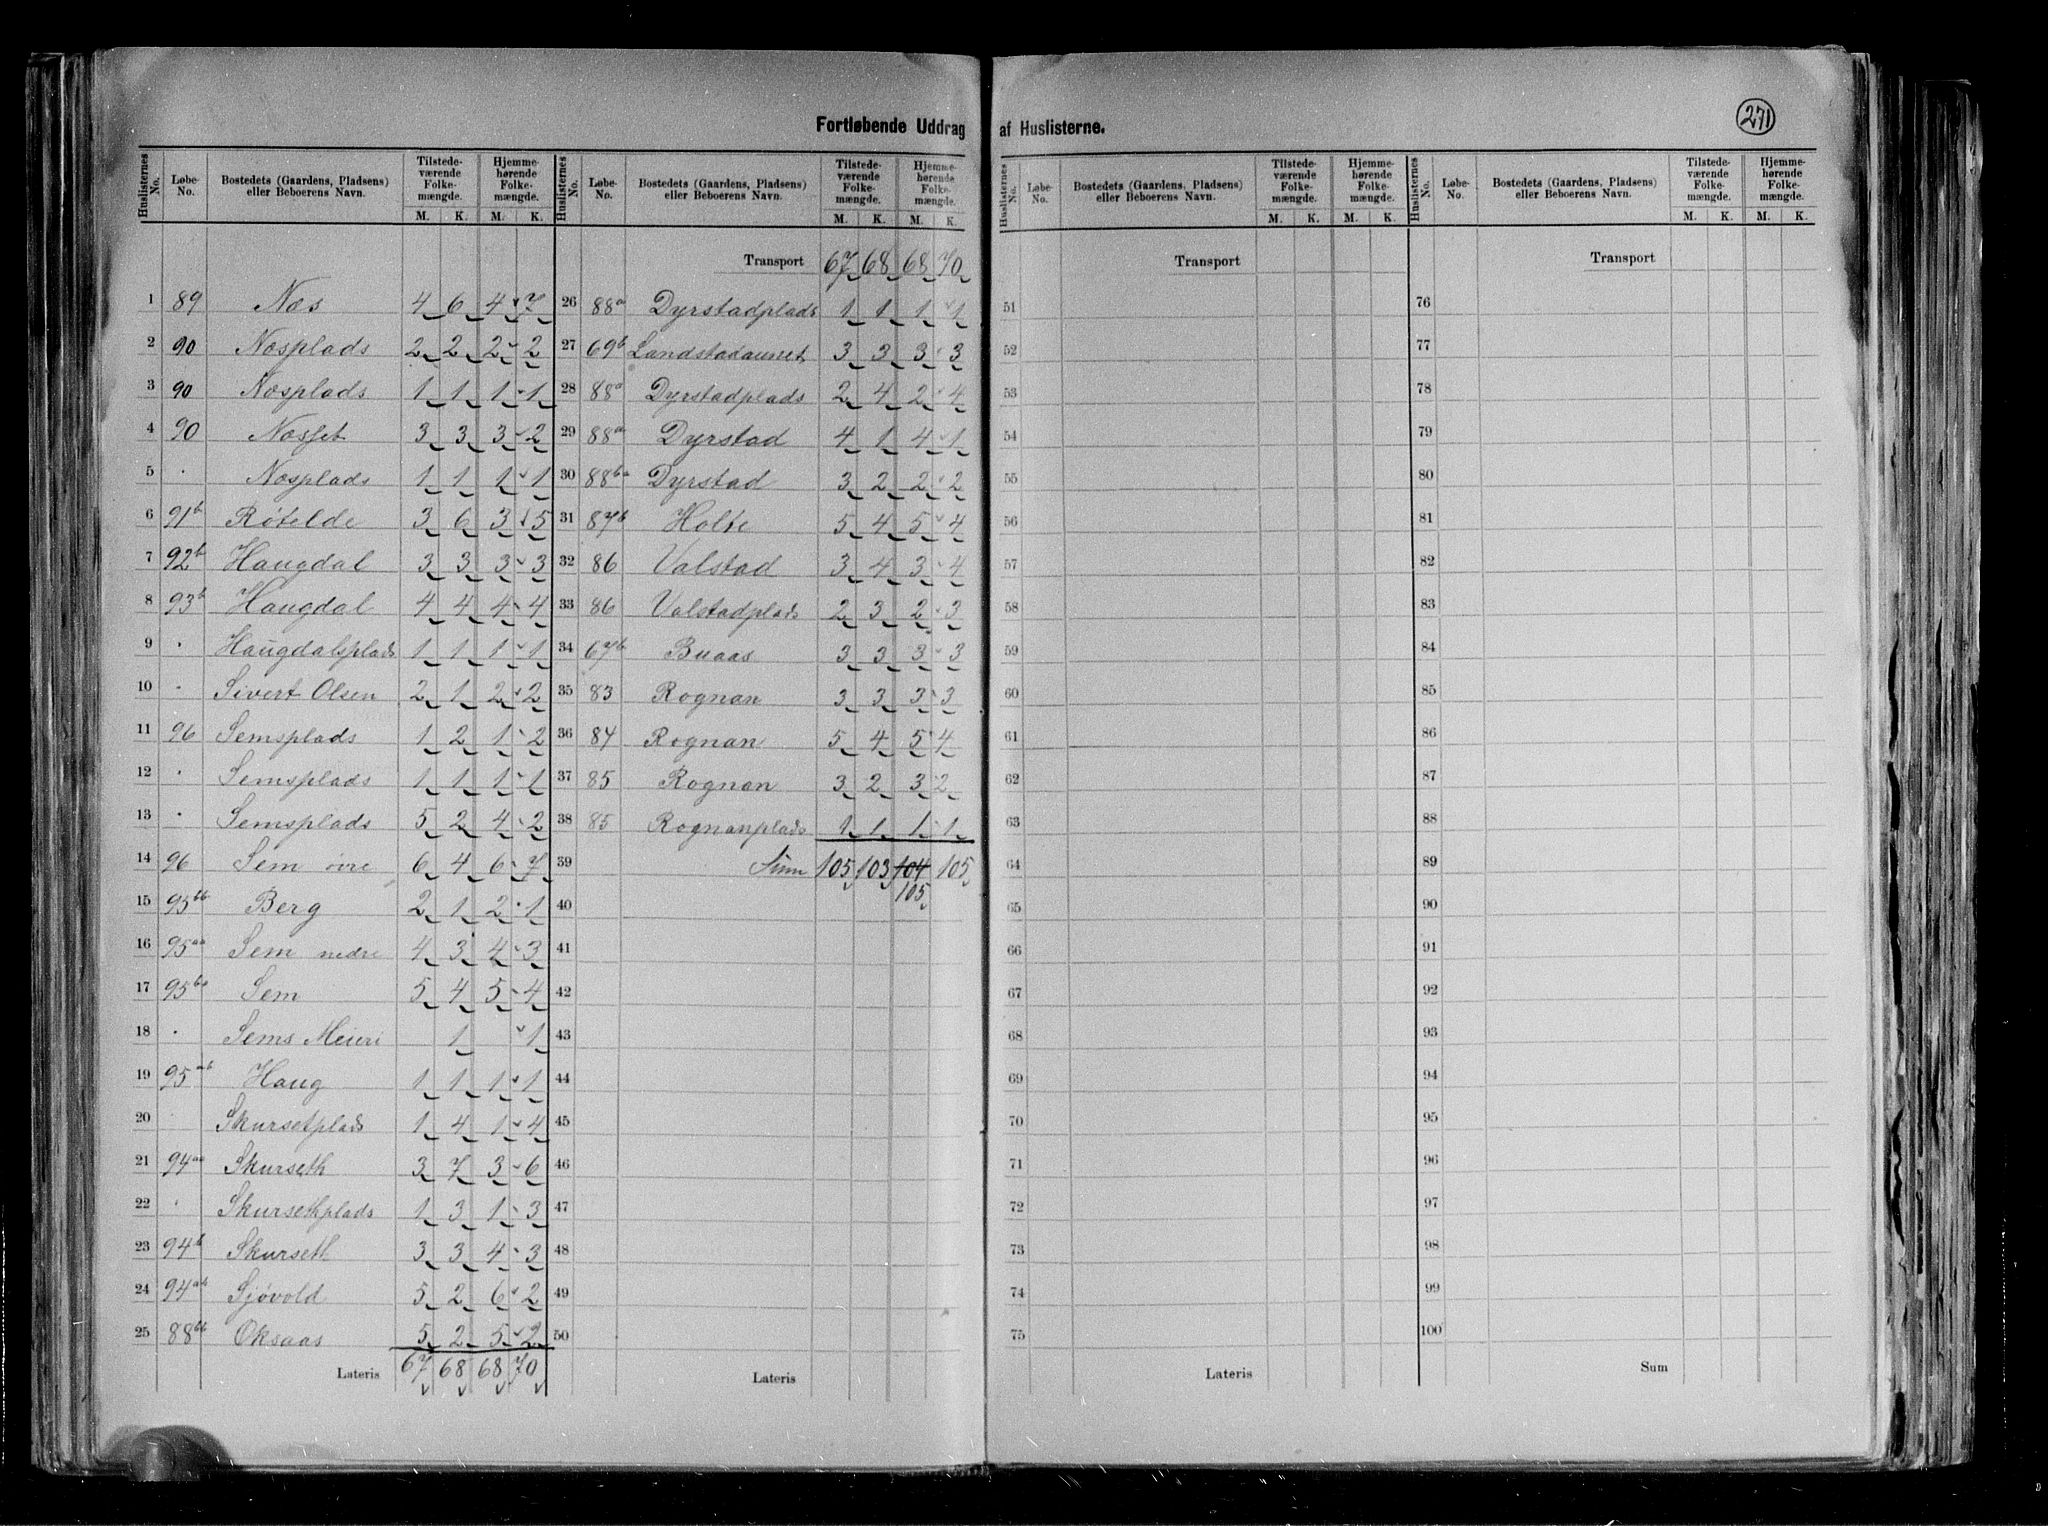 Fortløbende Uddrag af Huslisterne.
271
Huslisternes No. Løbe-No. Bostedets (Gaardens, Pladsens) eller Beboerens Navn. Tilstedeværende Folkemængde. M. K. Hjemmehørende Folkemængde. M. K.
1 89 Næs 4 6 4 7
2 90 Næsplads 2 2 2 2
3 90 Næsplads 1 1 1 1
4 90 Næsset 3 3 3 2
5 . Næsplads 1 1 1 1
6 91b Røtelde 3 6 3 5
7 92b Haugdal 3 3 3 3
8 93b Haugdal 4 4 4 4
9 . Haugdalsplads 1 1 1 1
10 . Sivert Olsen 2 1 2 2
11 96 Semsplads 1 2 1 2
12 . Semsplads 1 1 1 1
13 . Semsplads 5 2 4 2
14 96 Sem øvre 6 4 6 7
15 95bb Berg 2 1 2 1
16 95aa Sem nedre 4 3 4 3
17 95ba Sem 5 4 5 4
18 . Sems Meieri 1 1
19 95ab Haug 1 1 1 1
20 Skursetplads 1 4 1 4
21 94aa Skurseth 3 7 3 6
22 . Skursethplads 1 3 1 3
23 94b Skurseth 3 3 4 3
24 94ab Sjøvold 5 2 6 2
25 88bb Oksaas 5 2 5 2
Lateris 67 68 68 70
Huslisternes No. Løbe-No. Bostedets (Gaardens, Pladsens) eller Beboerens Navn. Tilstedeværende Folkemængde. M. K. Hjemmehørende Folkemængde. M. K.
Transport 67 68 68 70
26 88a Dyrstadplads 1 1 1 1
27 69b Landstadaunet 3 3 3 3
28 88a Dyrstadplads 2 4 2 4
29 88a Dyrstad 4 1 4 1
30 88ba Dyrstad 3 2 2 2
31 87b Holte 5 4 5 4
32 86 Valstad 3 4 3 4
33 86 Valstadplads 2 3 2 3
34 67b Buaas 3 3 3 3
35 83 Rognan 3 3 3 3
36 84 Rognan 5 4 5 4
37 85 Rognan 3 2 3 2
38 85 Rognanplads 1 1 1 1
39 Sum 105 103 104 105
105
40
41
42
43
44
45
46
47
48
49
50
Lateris
Huslisternes No. Løbe-No. Bostedets (Gaardens, Pladsens) eller Beboerens Navn. Tilstedeværende Folkemængde. M. K. Hjemmehørende Folkemængde. M. K.
Transport
51
52
53
54
55
56
57
58
59
60
61
62
63
64
65
66
67
68
69
70
71
72
73
74
75
Lateris
Huslisternes No. Løbe-No. Bostedets (Gaardens, Pladsens) eller Beboerens Navn. Tilstedeværende Folkemængde. M. K. Hjemmehørende Folkemængde. M. K.
Transport
76
77
78
79
80
81
82
83
84
85
86
87
88
89
90
91
92
93
94
95
96
97
98
99
100
Sum